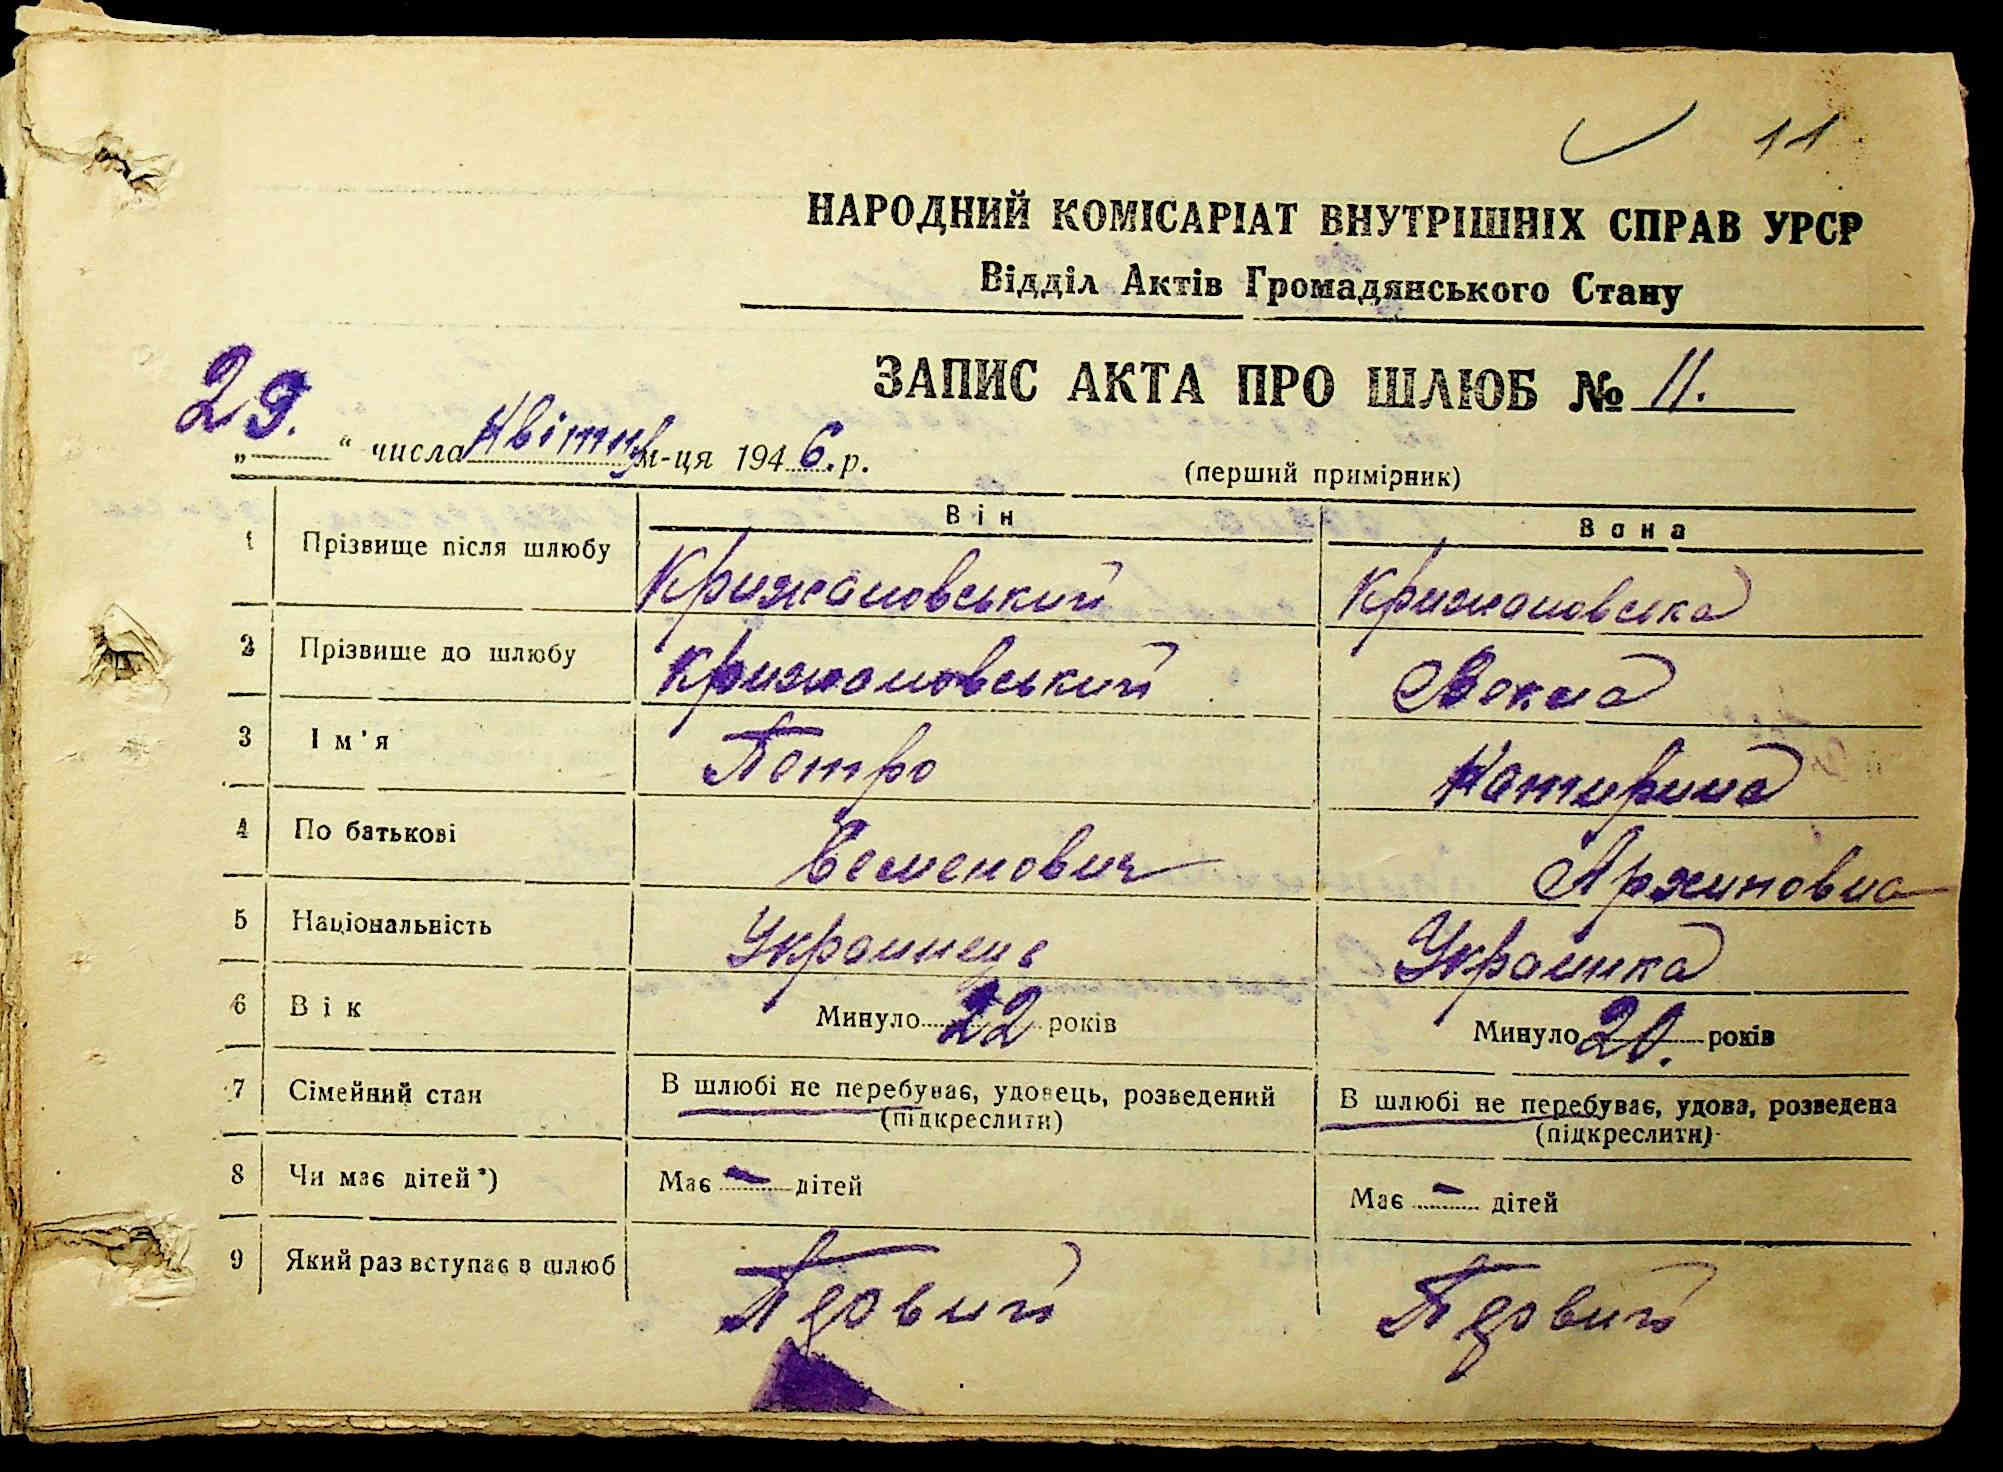 11
НАРОДНИЙ КОМІСАРІАТ ВНУТРІШНІХ СПРАВ УРСР
Відділ Актів Громадянського Стану
ЗАПИС АКТА ПРО ШЛЮБ № 11.
„29.“ числа Квітня м-ця 1946.р.
(перший примірник)
Він Вона
1 Прізвище після шлюбу Крижановський Крижановська
2 Прізвище до шлюбу Крижановський
3 Ім'я Петро Катирина
4 По батькові Семенович Архиповна
5 Національність Украинець Украинка
6 Вік Минуло 22 років Минуло 20. років
7 Сімейний стан В шлюбі не перебуває, удовець, розведений В шлюбі не перебуває, удова, розведена
(підкреслити) (підкреслити)
8 Чи має дітей*) Має - дітей Має - дітей
9 Який раз вступає в шлюб Перовий Перовий